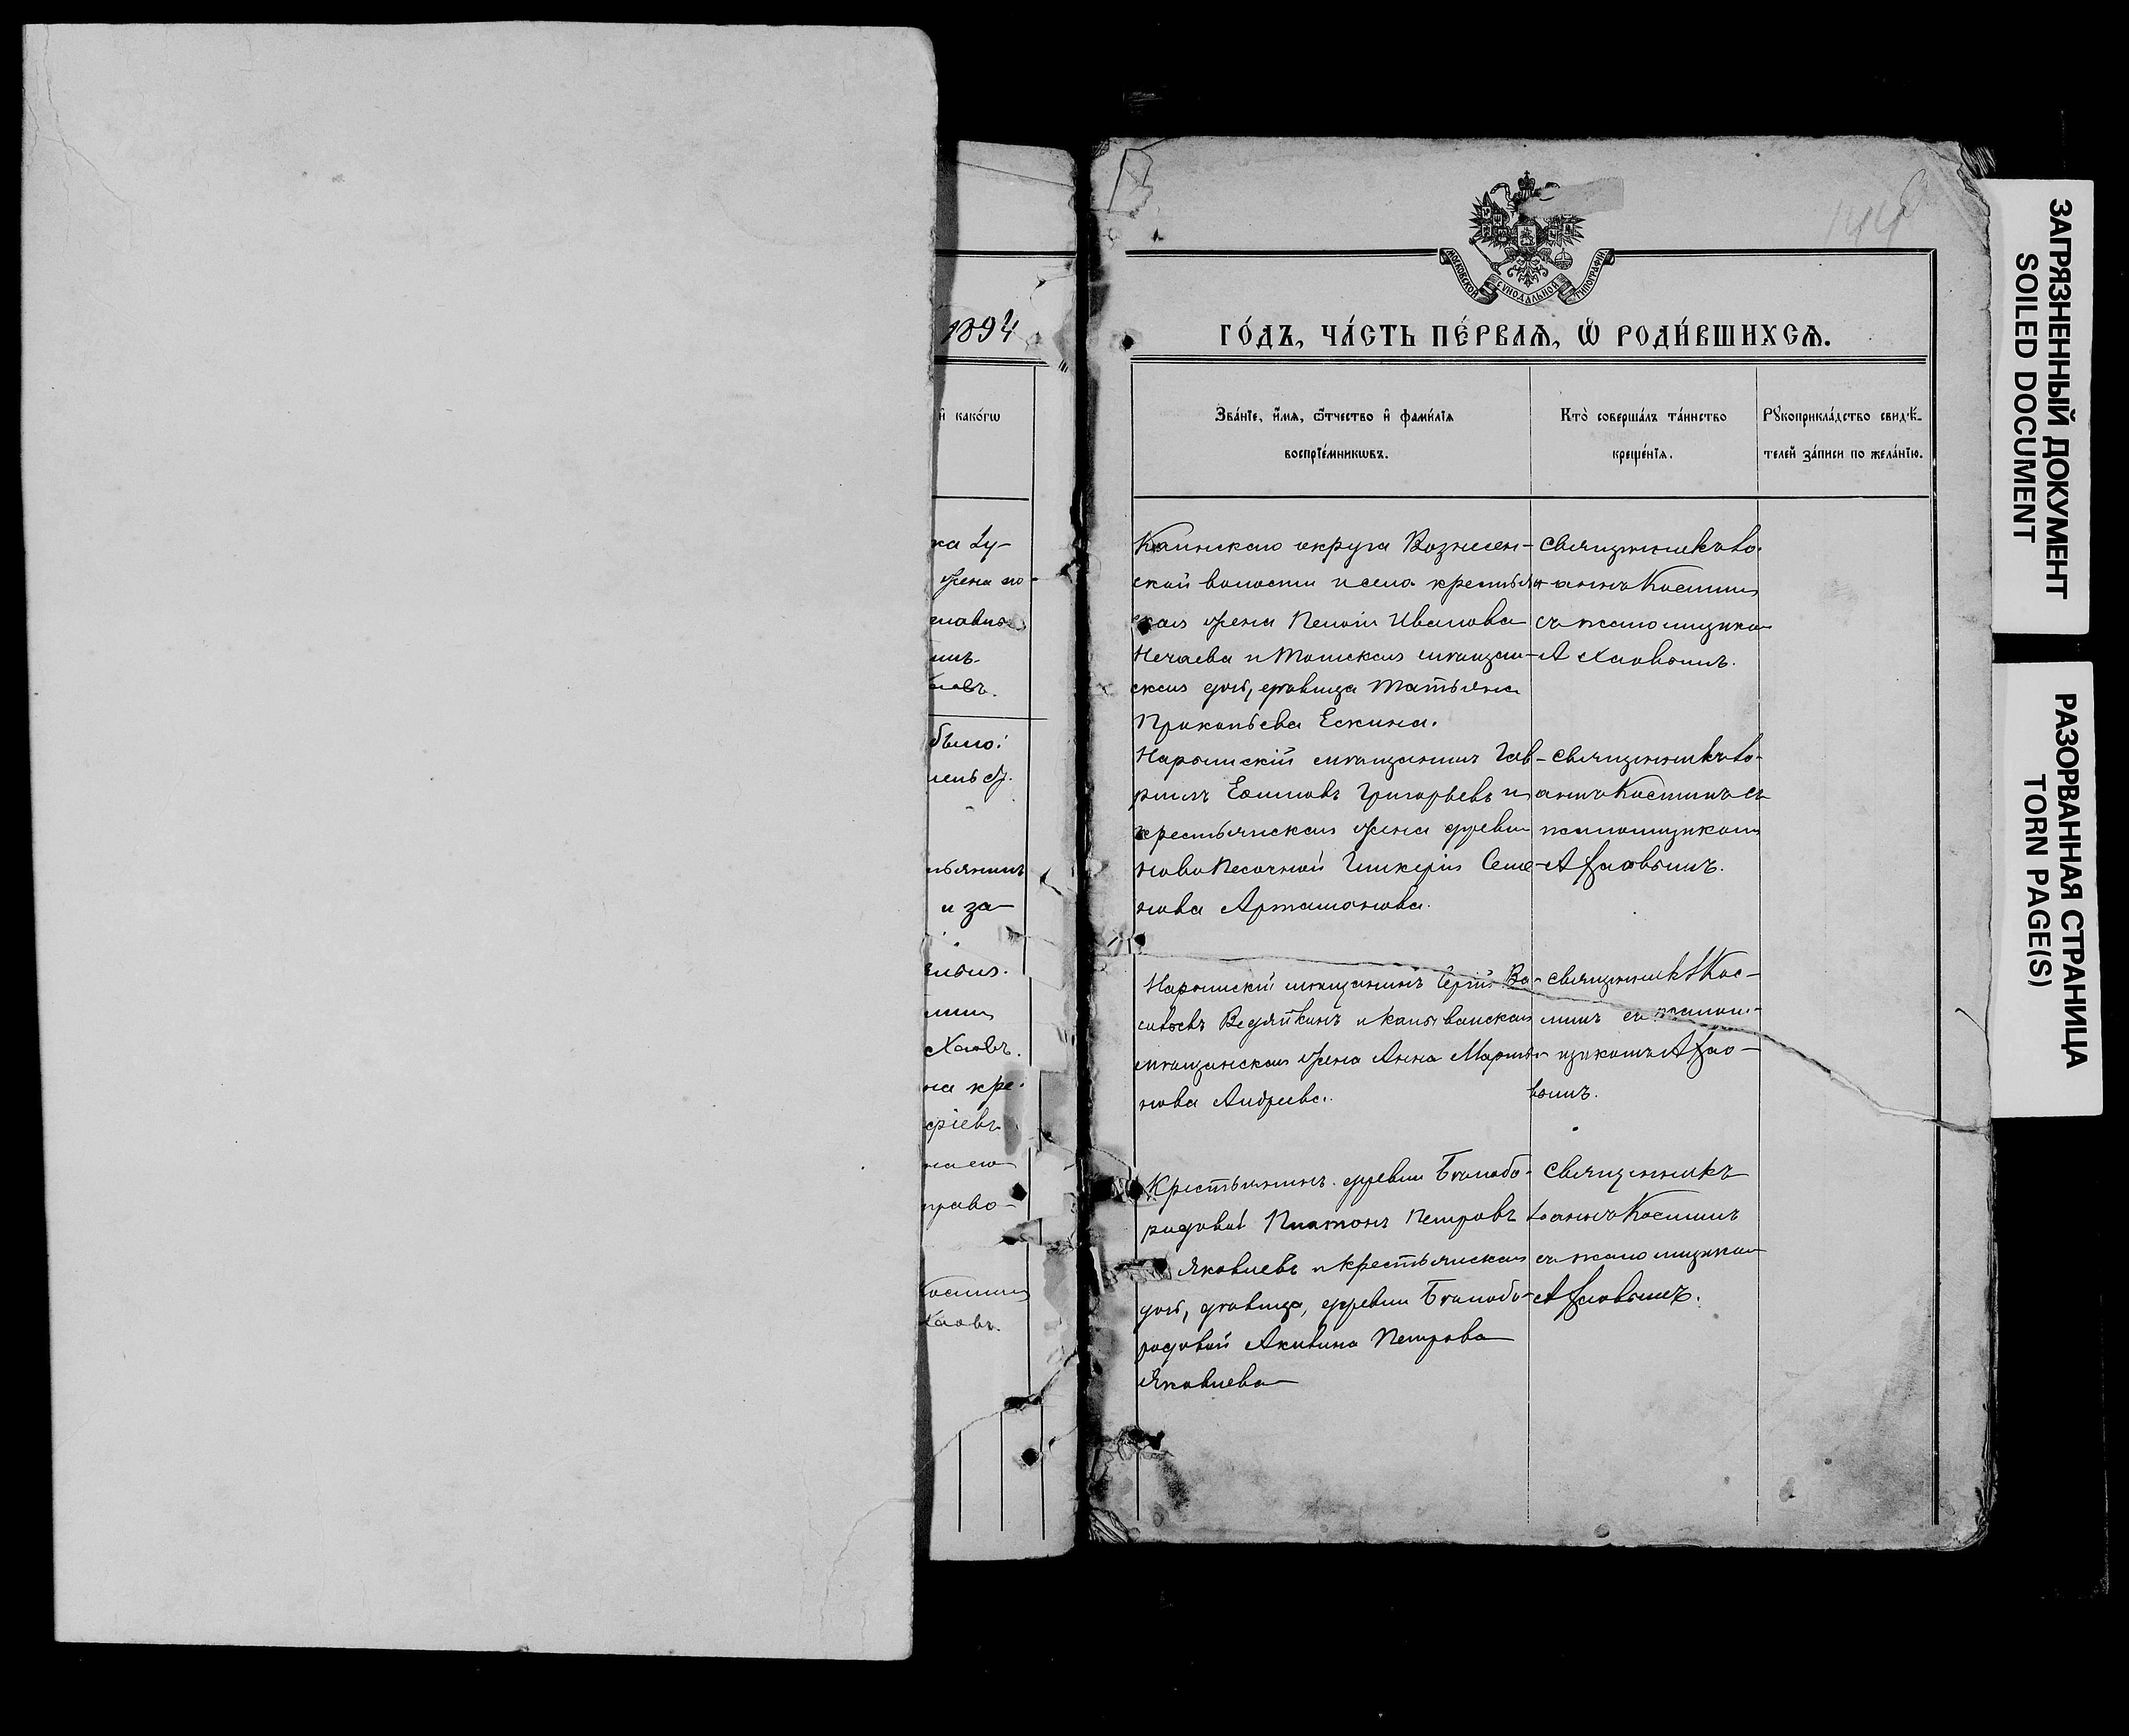 1894
и какогѡ
ка Лу-
жена по-
славна
инъ.
было:
и за-
Хаовъ.
на кре-
право-
Костинъ
Хаовъ.
144
МОСКОВСКОЙ СѴНОДАЛЬНОЙ ТИПОГРАФІИ
ГО́ДЪ, ЧА́СТЬ ПЕ́РВАѦ, Ѡ҆ РОДИ́ВШИХСѦ.
Зва́нїе, и҆́мѧ, ѻ҆́тчество и҆ фами́лїѧ
воспрїе́мникѡвъ.
Кто̀ соверша́лъ та́инство
креще́нїѧ.
Рꙋкоприкла́дство свидѣ́-
телей за́писи по жела́нїю.
Каинскаго округа Вознесен-
ской волости и села крестьян
ская жена Пелагія Иванова
Нечаева и Томская мѣщан-
ская дочь, дѣвица Татьяна
Прокопьева Ескина.
Священникъ Іо-
аннъ Костинъ
съ псаломщико
А Хаовымъ.
Нарымскій мѣщанинъ Гав-
риилъ Ефимовъ Григорьевъ и
крестьянская жена деревни
Ново Песочной Гликерія Семе-
нова Артамонова.
Священникъ Іо-
аннъ Костинъ съ
псаломщикомъ
А Хаовымъ.
Нарымскій мѣщанинъ Сергій Ва-
сильевъ Ведяйкинъ и Колыванская
мѣщанская жена Анна Марть-
нова Андреева.
Священникъ І Кос-
тинъ съ псалом-
щикомъ А Хао-
вымъ.
Крестьянинъ деревни Бѣлобо-
родовой Платонъ Петровъ
Яковлевъ и крестьянская
дочь, дѣвица, деревни Бѣлобо-
родовой Акилина Петрова
Яковлева
Священникъ
Іоаннъ Костинъ
съ псаломщиком
А Хаовымъ.
ЗАГРЯЗНЕННЫЙ ДОКУМЕНТ
SOILED DOCUMENT
РАЗОРВАННАЯ СТРАНИЦА
TORN PAGE(S)